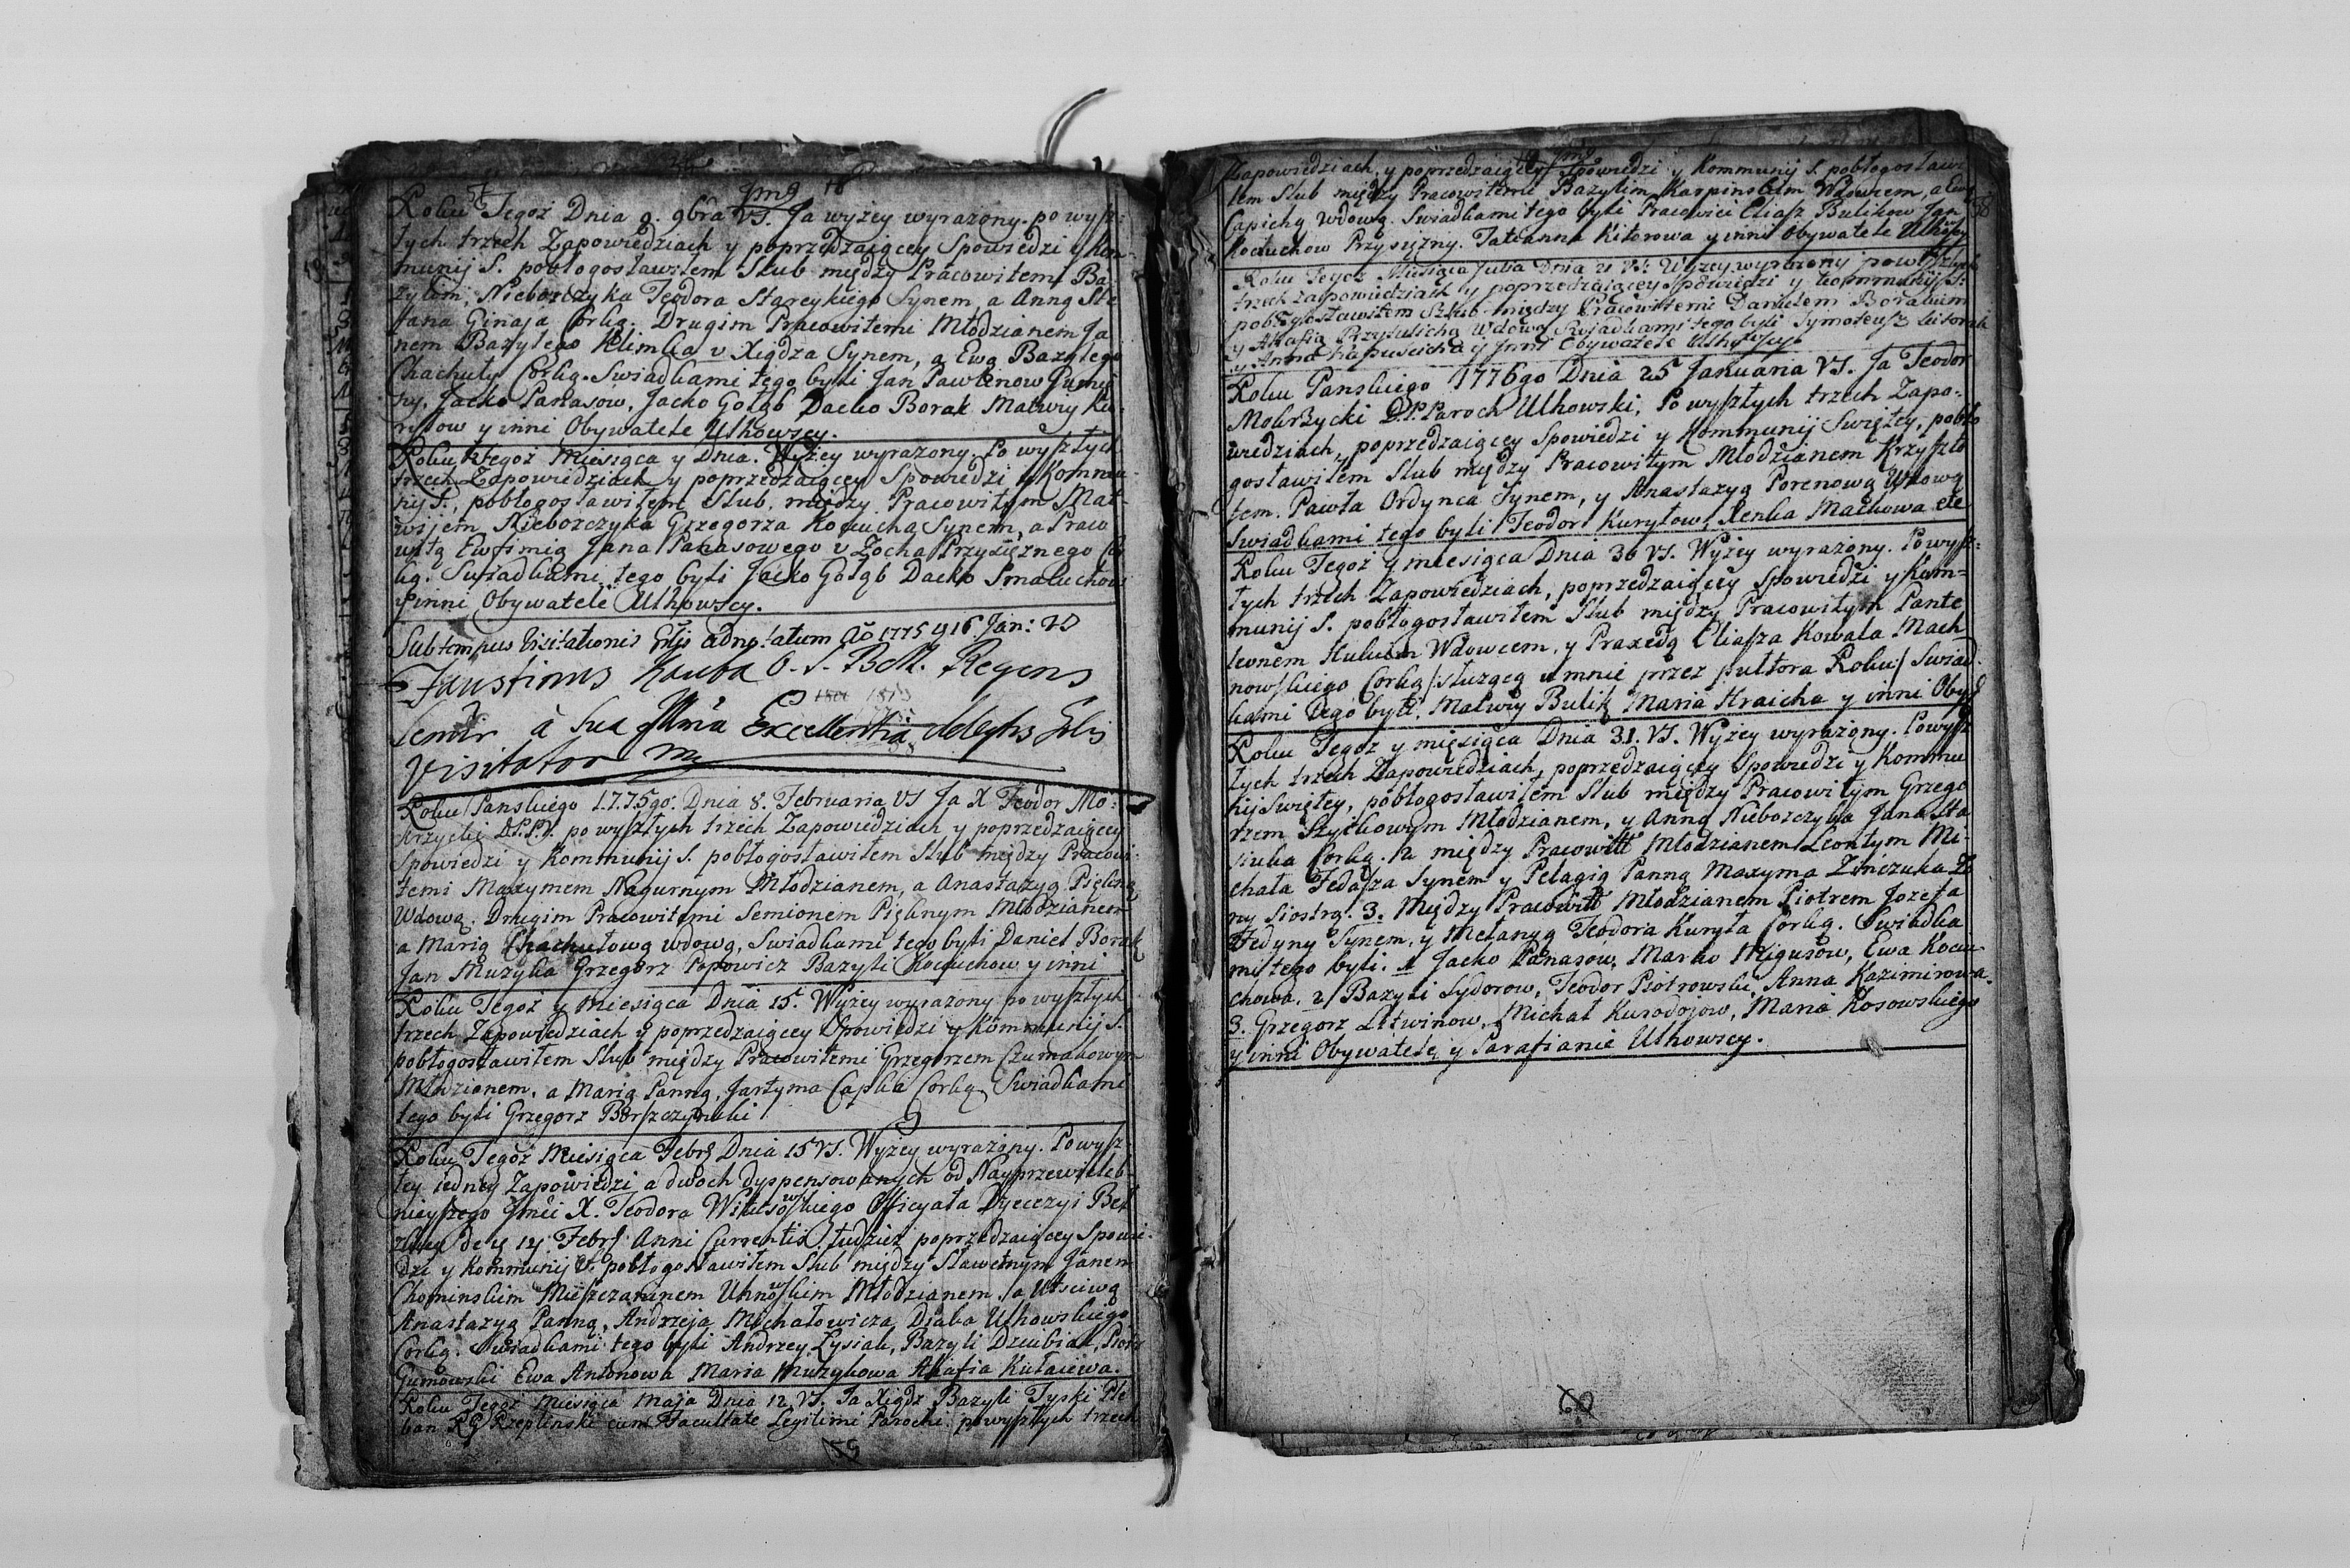 Roku Tegoż Dnia 9. 9bra VS. Ja wyżey wyrażony. po wysz:
łych trzech Zapowiedziach y poprzedzaiącey Spowiedzi y Kom-
munij S. pobłogosławiłem Slub między Pracowitemi Ba
zylim, Nieborczyka Teodora Stareykiego Synem, a Anną Ste
fana Ginaja Corką. Drugim Pracowitemi Młodzianem Ja
nem Bazylego Klimka v Xiędza Synem, a Ewą Bazylego
Chachuły Corką. Swiadkami tego byli Jan Pawlinow
ny, Jacko Panasow, Jacko Gołąb Dacko Borak Matwiy Ku
ryłow y inni Obywatele Uhnowscy.
Roku tegoż Miesiąca y Dnia. Wyżey wyrażony. Po wyszłych
trzech Zapowiedziach y poprzedzaiącey Spowiedzi y Kommu
nij S., pobłogosławiłem Slub, między Pracowitym Mat-
wijem, Nieborczyka Grzegorza Kociucha Synem, a Praco
witą Ewfimią Jana Panasowego v Zocha Przysiężnego Cor
ką. Swiadkami tego byli Jacko Gołąb Dacko Smaluchow
y inni Obywatele Ulhowscy.
Sub tempus Visitationis Gnlis adnotatum Ao 1775 916 Jan: VS
Faustinus Kauba O. S. B. M. Regens
Semir à Sua Illma Excellentia delegtus Gnlis
Visitator mp
Roku Panskiego 1775go. Dnia 8. Februaria VS Ja X Teodor Mo:
krzycki D.P.P.U. po wyszłych trzech Zapowiedziach y poprzedzaiącey
Spowiedzi y Kommunij S. pobłogosławiłem Slub między Pracowi:
temi Maxymem Nagurnym Młodzianem, a Anastazyą Pięlną
Wdową. Drugim Pracowitemi Semionem Pięlnym Młodzianem
a Marią Chachułową wdową, Swiadkami tego byli Daniel Borak
Jan Muzyka Grzegorz Popowicz Bazyli Kociuchow y inni
Roku Tegoż y Miesiąca Dnia 15. Wyżey wyrażony po wyszłych
trzech Zapowiedziach y poprzedzaiącey Spowiedzi y Kommunij S.
pobłogosławiłem Slub między Pracowitemi Grzegorzem Czumakowym
Młodzianem, a Marią Panną, Jartyma Capka Corką Swiadkami
tego byli Grzegorz Borszczynski
Roku Tegoż Miesiąca Febr Dnia 15 VS. Wyżey wyrażony. Po wysz
łey iedney Zapowiedzi a dwoch dyspensowanych od Nayprzewieleb-
nieyszego Jmći X. Teodora Witwsowskiego Officyała Dyecezyi Beł
zkiey de 14 Febr Anni Currentis tudzież poprzedzaiącey Spowie
dzi y Kommunij S. pobłogosławiłem Slub między Sławetnym Janem
Chominskim Mieszczaninem Uhnowskim Młodzianem, a Utsciwą
Anastazyą Panną, Andrzeja Michałowicza Diaka Ulhowskiego
Corką. Swiadkami tego byli Andrzey Łysiak, Bazyli Dziubiak, Piotr
Gumowski Ewa Antonowa Maria Muzykowa Akafia Kułaiewa.
Roku Tegoż Miesiąca Maja Dnia 12 VS. Ja Xiądz Bazyli Tyski Ple
ban Rzeplinski cum Facultate Legitimi Parochi. po wyszłych trzech
59
Zapowiedziach, y poprzedzaiącey Spowiedzi y Kommunij S. pobłogosławi
łem Slub między Pracowitemi Bazylim Karpinskim Wdowcem, a Ewą
Capichą Wdową. Swiadkami tego byli Pracowici Eliasz Bulikow Jan
Kociuchow Przysiężny. Tatianna Kitorowa y inni Obywatele Ulhowscy
Roku Tegoż Miesiąca Julia Dnia 21 VS. Wyżey wyrażony po wyszłych
trzech zapowiedziach y poprzedzaiącey Spowiedzi y Kommunij S:
pobłogosławiłem Szlub między Pracowitemi Danielem Borakiem
y Akafią Przytulichą Wdową Swiadkami tego byli Tymoteusz
y Anna Kapuscicha y Inni Obywatele Ulhowscy
Roku Panskiego 1776go Dnia 25 Januaria VS. Ja Teodor
Mokrzycki D.P. Paroch Ulhowski, Po wyszłych trzech Zapo-
wiedziach, poprzedzaiącey Spowiedzi y Kommunij Swiętey, pobło
gosławiłem Slub między Pracowitym Młodzianem Krzyszto
fem. Pawła Ordynca Synem, y Anastazyą Porenową Wdową
Swiadkami tego byli Teodor Kuryłow, Xenka Mackowa etc
Roku Tegoż y miesiąca Dnia 30 VS. Wyżey wyrażony. Po wysz:
łych trzech Zapowiedziach, poprzedzaiącey Spowiedzi y Kom=
munij S. pobłogosławiłem Slub między Pracowitym Pante
leonem Wdowcem, y Praxedą Eliasza Kowala Mach
nowskiego Corką /:służącą u mnie przez pułtora Roku:/ Swiad.
kami tego byli, Matwiy Bulik Maria Hraicha y inni Obyw
Roku Tegoż y miesiąca Dnia 31. VS. Wyżey wyrażony. Po wysz
łych trzech Zapowiedziach, poprzedzaiącey Spowiedzi y Kommu
nij Swiętey, pobłogosławiłem Slub między Pracowitym Grzego
rzem Szyckowym Młodzianem, y Anną Nieborczyka Jana Sta
siuka Corką. 2. między Pracowitt Młodzianem Leontym Mi-
chała Fedasza Synem y Pelagią Panną Maxyma Zinczuka
ny Siostrą. 3. Między Pracowitt Młodzianem Piotrem Jozefa
Fedyny Synem, y Melanyą Teodora Kuryła Corką. Swiadka
mi tego byli. 1 Jacko Panasow, Marko Migusow, Ewa Kociu
chowa, 2/ Bazyli Sydorow, Teodor Piotrowski, Anna Kazimirowa.
3. Grzegorz Litwinow, Michał Kurodojow, Maria Kosowskiego
y inni Obywatele y Parafianie Ulhowscy.
60